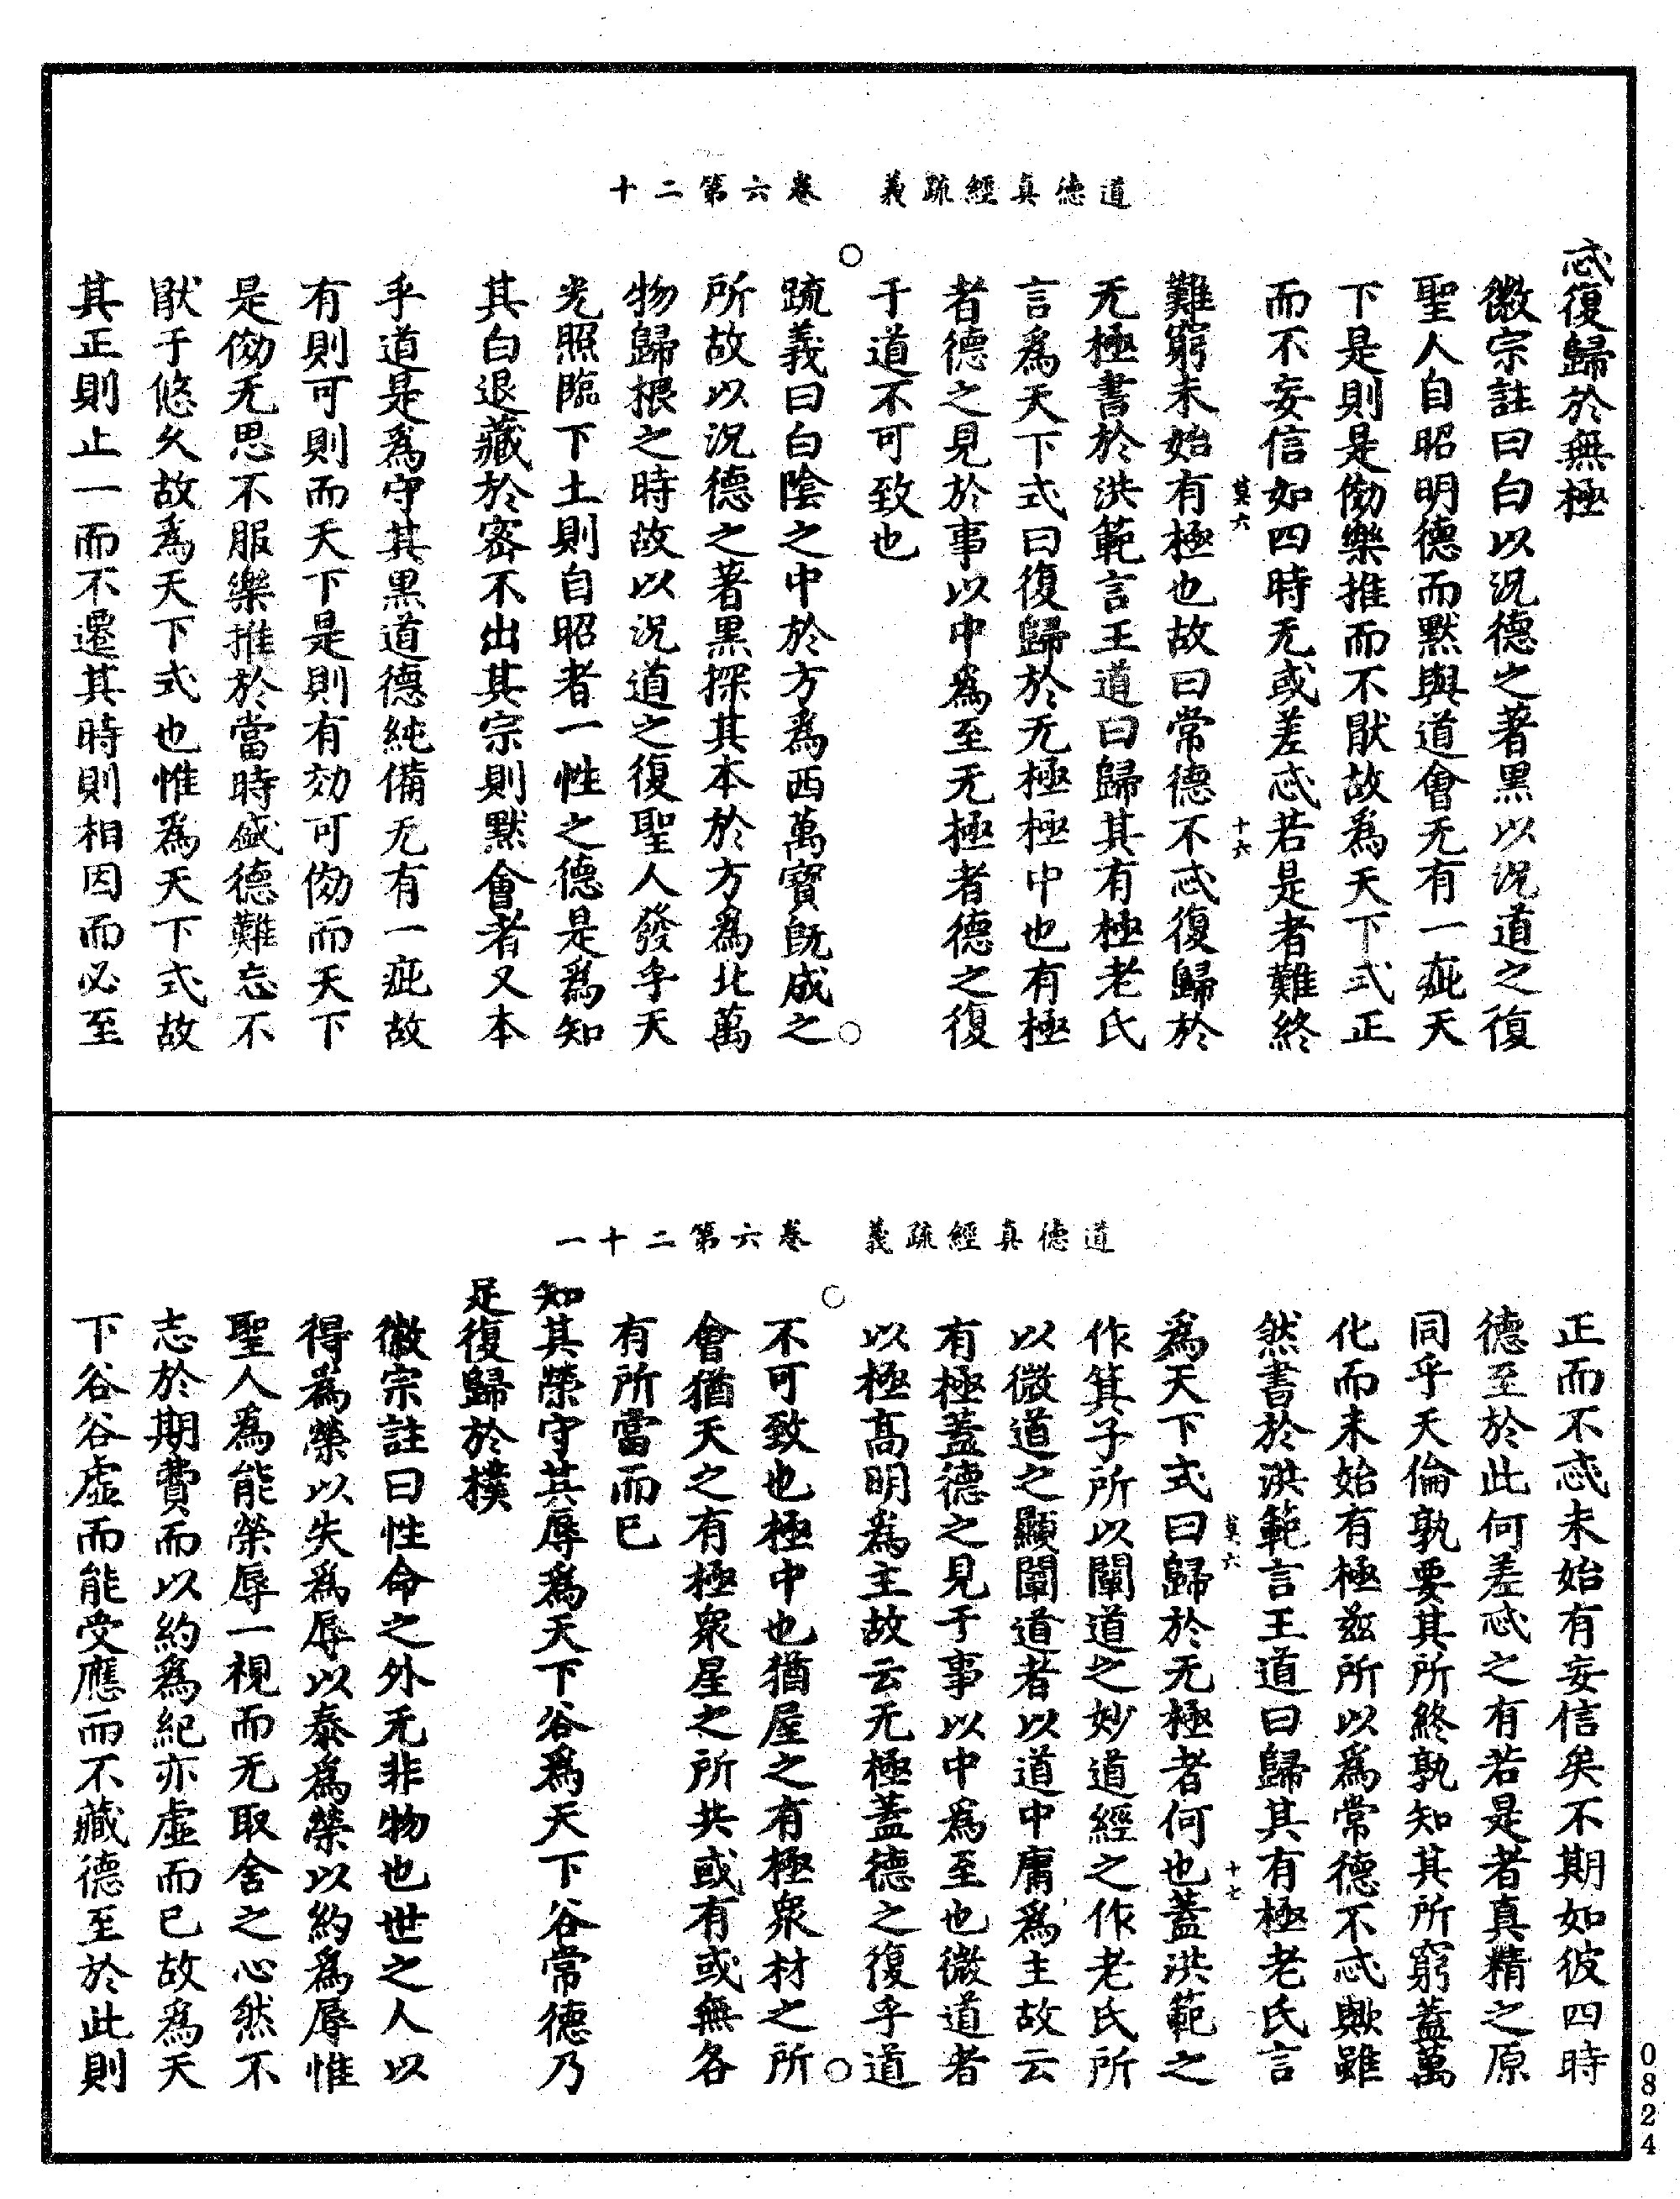 道德真經疏義　卷六第二十
忒復歸於無極
徽宗註曰白以況德之著黑以況道之復
聖人自昭明德而默與道會无有一疵天
下是則是傚樂推而不猒故為天下式正
而不妄信如四時无或差忒若是者難終
莫六　十六
難窮未始有極也故曰常德不忒復歸於
无極書於洪範言王道曰歸其有極老氏
言為天下式曰復歸於无極極中也有極
者德之見於事以中為至无極者德之復
于道不可致也
疏義曰白陰之中於方為西萬寶旣成之
所故以況德之著黑探其本於方為北萬
物歸根之時故以況道之復聖人發乎天
光照臨下土則自昭者一性之德是為知
其白退藏於密不出其宗則默會者又本
乎道是為守其黑道德純備无有一疵故
有則可則而天下是則有効可傚而天下
是傚无思不服樂推於當時盛德難忘不
猒于悠久故為天下式也惟為天下式故
其正則止一而不遷其時則相因而必至
道德真經疏義　卷六第二十一
正而不忒未始有妄信矣不期如彼四時
德至於此何差忒之有若是者真精之原
同乎天倫孰要其所終孰知其所窮蓋萬
化而未始有極玆所以為常德不忒歟雖
然書於洪範言王道曰歸其有極老氏言
莫六　十七
為天下式曰歸於无極者何也蓋洪範之
作箕子所以闡道之妙道經之作老氏所
以微道之顯闡道者以道中庸為主故云
有極蓋德之見于事以中為至也微道者
以極高明為主故云无極蓋德之復乎道
不可致也極中也猶屋之有極衆材之所
會猶天之有極衆星之所共或有或無各
有所當而已
知其榮守其辱為天下谷為天下谷常德乃
足復歸於樸
徽宗註曰性命之外无非物也世之人以
得為榮以失為辱以泰為榮以約為辱惟
聖人為能榮辱一視而无取舍之心然不
志於期費而以約為紀亦虛而已故為天
下谷谷虛而能受應而不藏德至於此則
0824